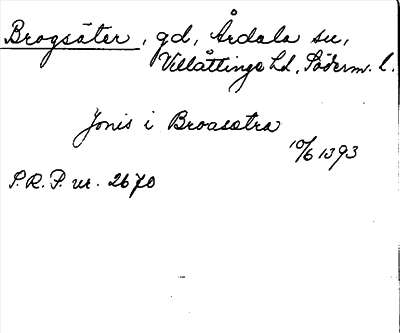 Brogsäter, gd, Årdala sn,
Villåttinge hd, Söderm. l.
Jonis i Broasætra
10/6 1393
S.R.P. nr. 2670